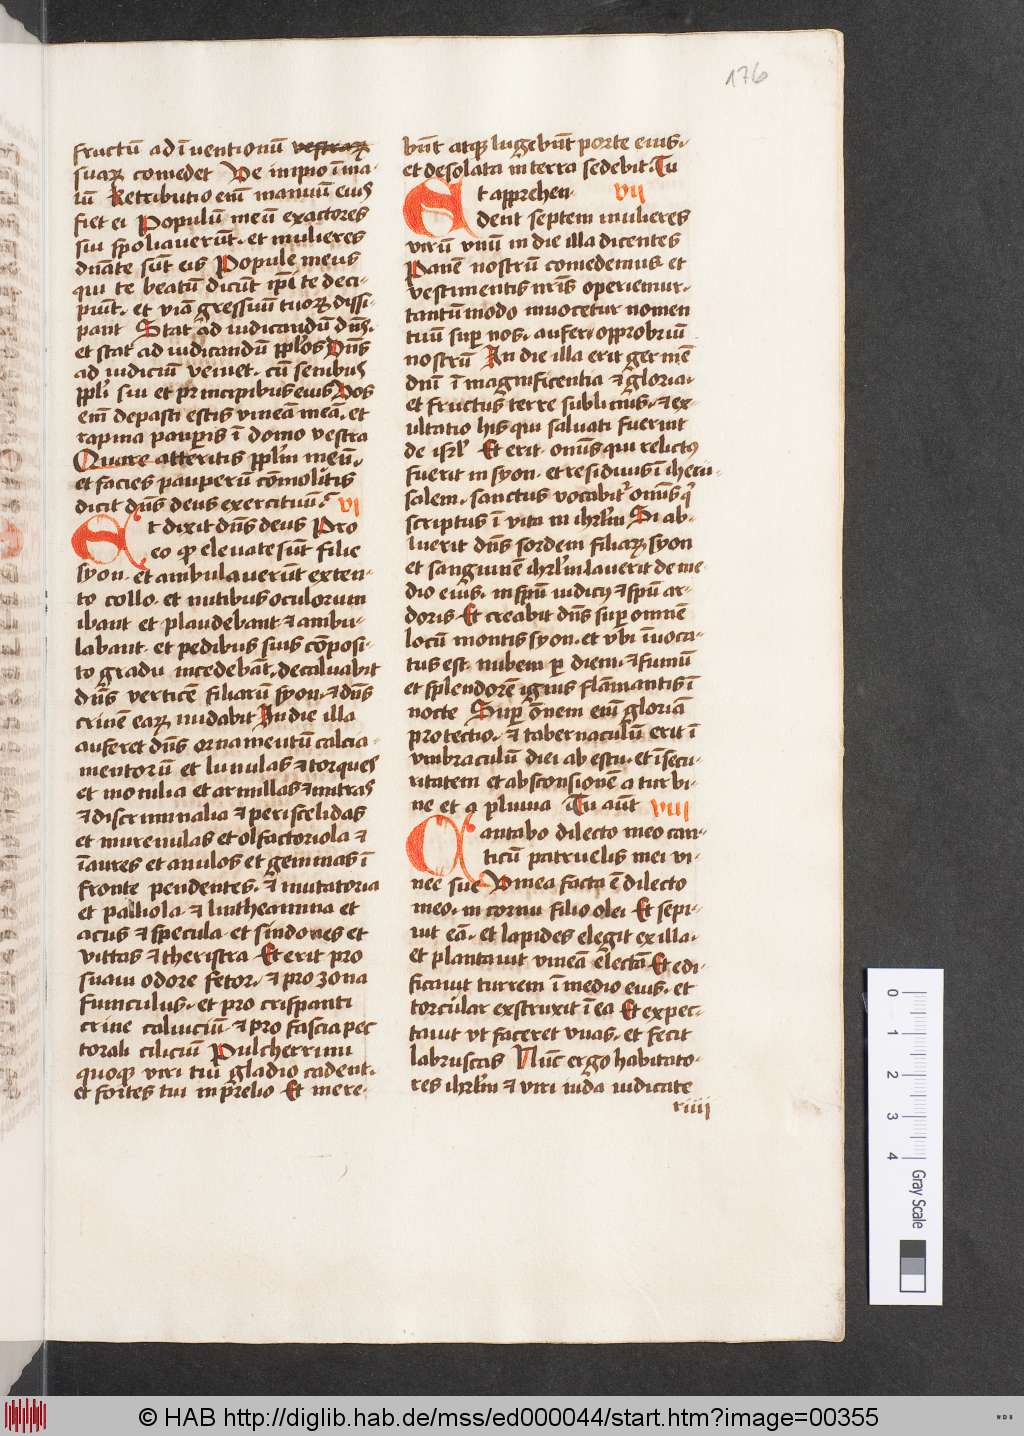 176
fructū ad īventionū vestraꝝ
suaꝝ comedet Ve impio ī ma-
lū Retributio em̄ manuū eius
fiet ei Populū meū exactores
sui spoliaverūt. et mulieres
dn̄ate sūt eis Popule meus
qui te beatū dicūt ip̄i te deci-
piūt. et viā gressuū tuoꝝ dissi-
pant Stat ad iudicandū dn̄s.
et stat ad iudicandū pplōs Dn̄s
ad iudiciū veniet. cū senibus
ppli sui et principibus eius Vos
em̄ depasti estis vineā meā. et
rapina paupis ī domo vestra
Quare atteritis pplm̄ meū.
et facies pauperū cōmolitis
dicit dn̄s deus exercituū. VI
Et dixit dn̄s deus Pro
eo ꝙ elevate sūt filie
syon. et ambulaverūt exten-
to collo. et nutibus oculorum
ibant et plaudebant. et ambu-
labant. et pedibus suis cōposi-
to gradu incedebāt. decalvabit
dn̄s verticē filiarū syon. et dn̄s
crinē earꝝ nudabit In die illa
auferet dn̄s ornamentū calcia-
mentorū et lunulas et torques
et monilia et armillas et mitras
et discriminalia et periscelidas
et murenulas et olfactoriola et
īaures et anulos et gemmas ī
fronte pendentes. et mutatoria
et palliola. et lintheamina et
acus et specula. et sindones et
vittas et theristra Et erit pro
suavi odore fetor. et pro zona
funiculus. et pro crispanti
crine calviciū. et pro fascia pec
torali ciliciū Pulcherrimi
quoqꝫ viri tui gladio cadent.
et fortes tui in prelio Et mere-
būt atqꝫ lugebūt porte eius.
et desolata in terra sedebit. Tu
Et apprehen- VII
dent septem mulieres
virū unū in die illa dicentes
Panē nostrū comedemus et
vestimentis nr̄is operiemur.
tantūmodo invocetur nomen
tuū sup nos. aufer opprobriū
nostrū In die illa erit germē
dnī ī magnificentia et gloria.
et fructus terre sublimis. et ex-
ultatio his qui salvati fuerint
de isrl Et erit. omīs qui relictus
fuerit in syon. et residuus ī iheru-
salem. sanctus vocabitr omīs q
scriptus ī vita in ihrlm Si ab-
luerit dn̄s sordem filiaꝝ syon
et sanguinē ihrlm laverit de me-
dio eius. in spū iudicii et spū ar-
doris Et creabit dn̄s sup omnē
locū montis syon. et ubi īvoca-
tus est. nubem p diem. et fumū
et splendorē ignis flāmantis ī
nocte Sup ōnem em̄ gloriā
protectio. et tabernaculū erit ī
umbraculū diei ab estu. et īsecu-
ritatem et absconsionē a turbi-
ne et a pluvia Tu aūt VIII
Cantabo dilecto meo can-
ticū patruelis mei vi-
nee sue Vinea facta ē dilecto
meo. in cornu filio olei Et sepi-
vit eā. et lapides elegit ex illa.
et plantavit vineā electā Et edi-
ficavit turrem ī medio eius. et
torcular exstruxit ī ea Et expec-
tavit ut faceret uvas. et fecit
labruscas Nūc ergo habitato-
res ihrlm et viri iuda iudicate
riiii
0
1
2
3
4
Gray Scale
© HAB http://diglib.hab.de/mss/ed000044/start.htm?image=00355
WDB